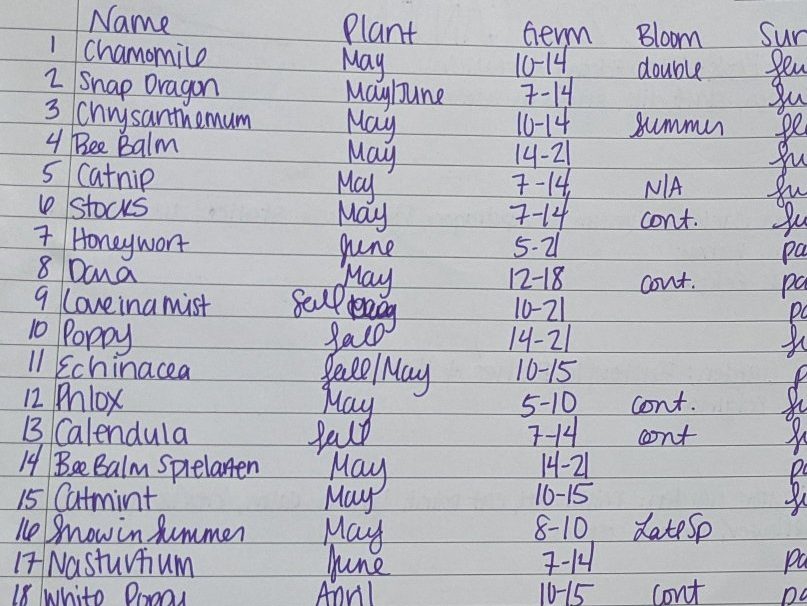 Name Plant Germ Bloom Sun
1 Chamomile May 10-14 double
2 Snap Dragon May/June 7-14
3 Chrysanthemum May 10-14 summer
4 Bee Balm May 14-21
5 Catnip May 7-14 N/A
6 Stocks May 7-14 cont.
7 Honeywort June 5-21
8 Dana May 12-18 cont.
9 Love in a mist fall 10-21
10 Poppy fall 14-21
11 Echinacea fall/May 10-15
12 Phlox May 5-10 cont.
13 Calendula fall 7-14 cont
14 Bee Balm Spielarten May 14-21
15 Catmint May 10-15
16 Snow in Summer May 8-10 Late Sp
17 Nasturtium June 7-14
18 White Poppy April 10-15 cont